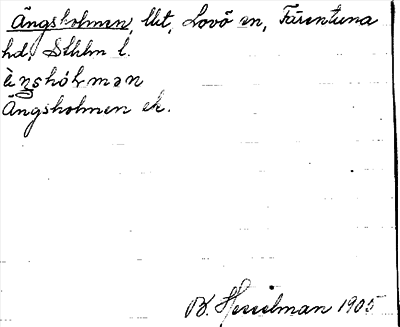 Ängsholmen, lht, Lovö sn, Färentuna
hd, Sthlm l.
Ängsholmen ek.
B. Hesselman 1905